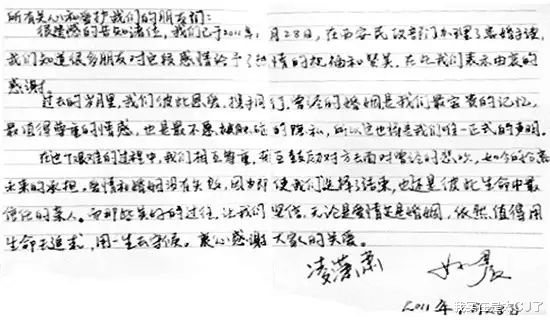 所有关心和爱护我们的朋友们：
很遗憾的告知诸位，我们已于2011年1月28日，在西安民政部门办理了离婚手续，
我们知道很多朋友对这段感情给予了热情的祝福和赞美，在此我们表示由衷的
感谢。
过去的岁月里，我们彼此恩爱，携手同行，曾经的婚姻是我们最宝贵的记忆，
最值得尊重的情感，也是最不愿被触碰的隐私，所以这也将是我们唯一正式的声明。
在这个艰难的过程中，我们相互尊重，鼓励对方去面对曾经的悲欢，如今的分离
未来的承担，爱情和婚姻没有失败，因为即使我们选择了结束，也还是彼此生命中最
信任的亲人。而那些美好的过往，让我们坚信，无论是爱情还是婚姻，依然值得用
生命去追求，用一生去守候。衷心感谢大家的关爱。
凌潇肃 姚晨
2011年